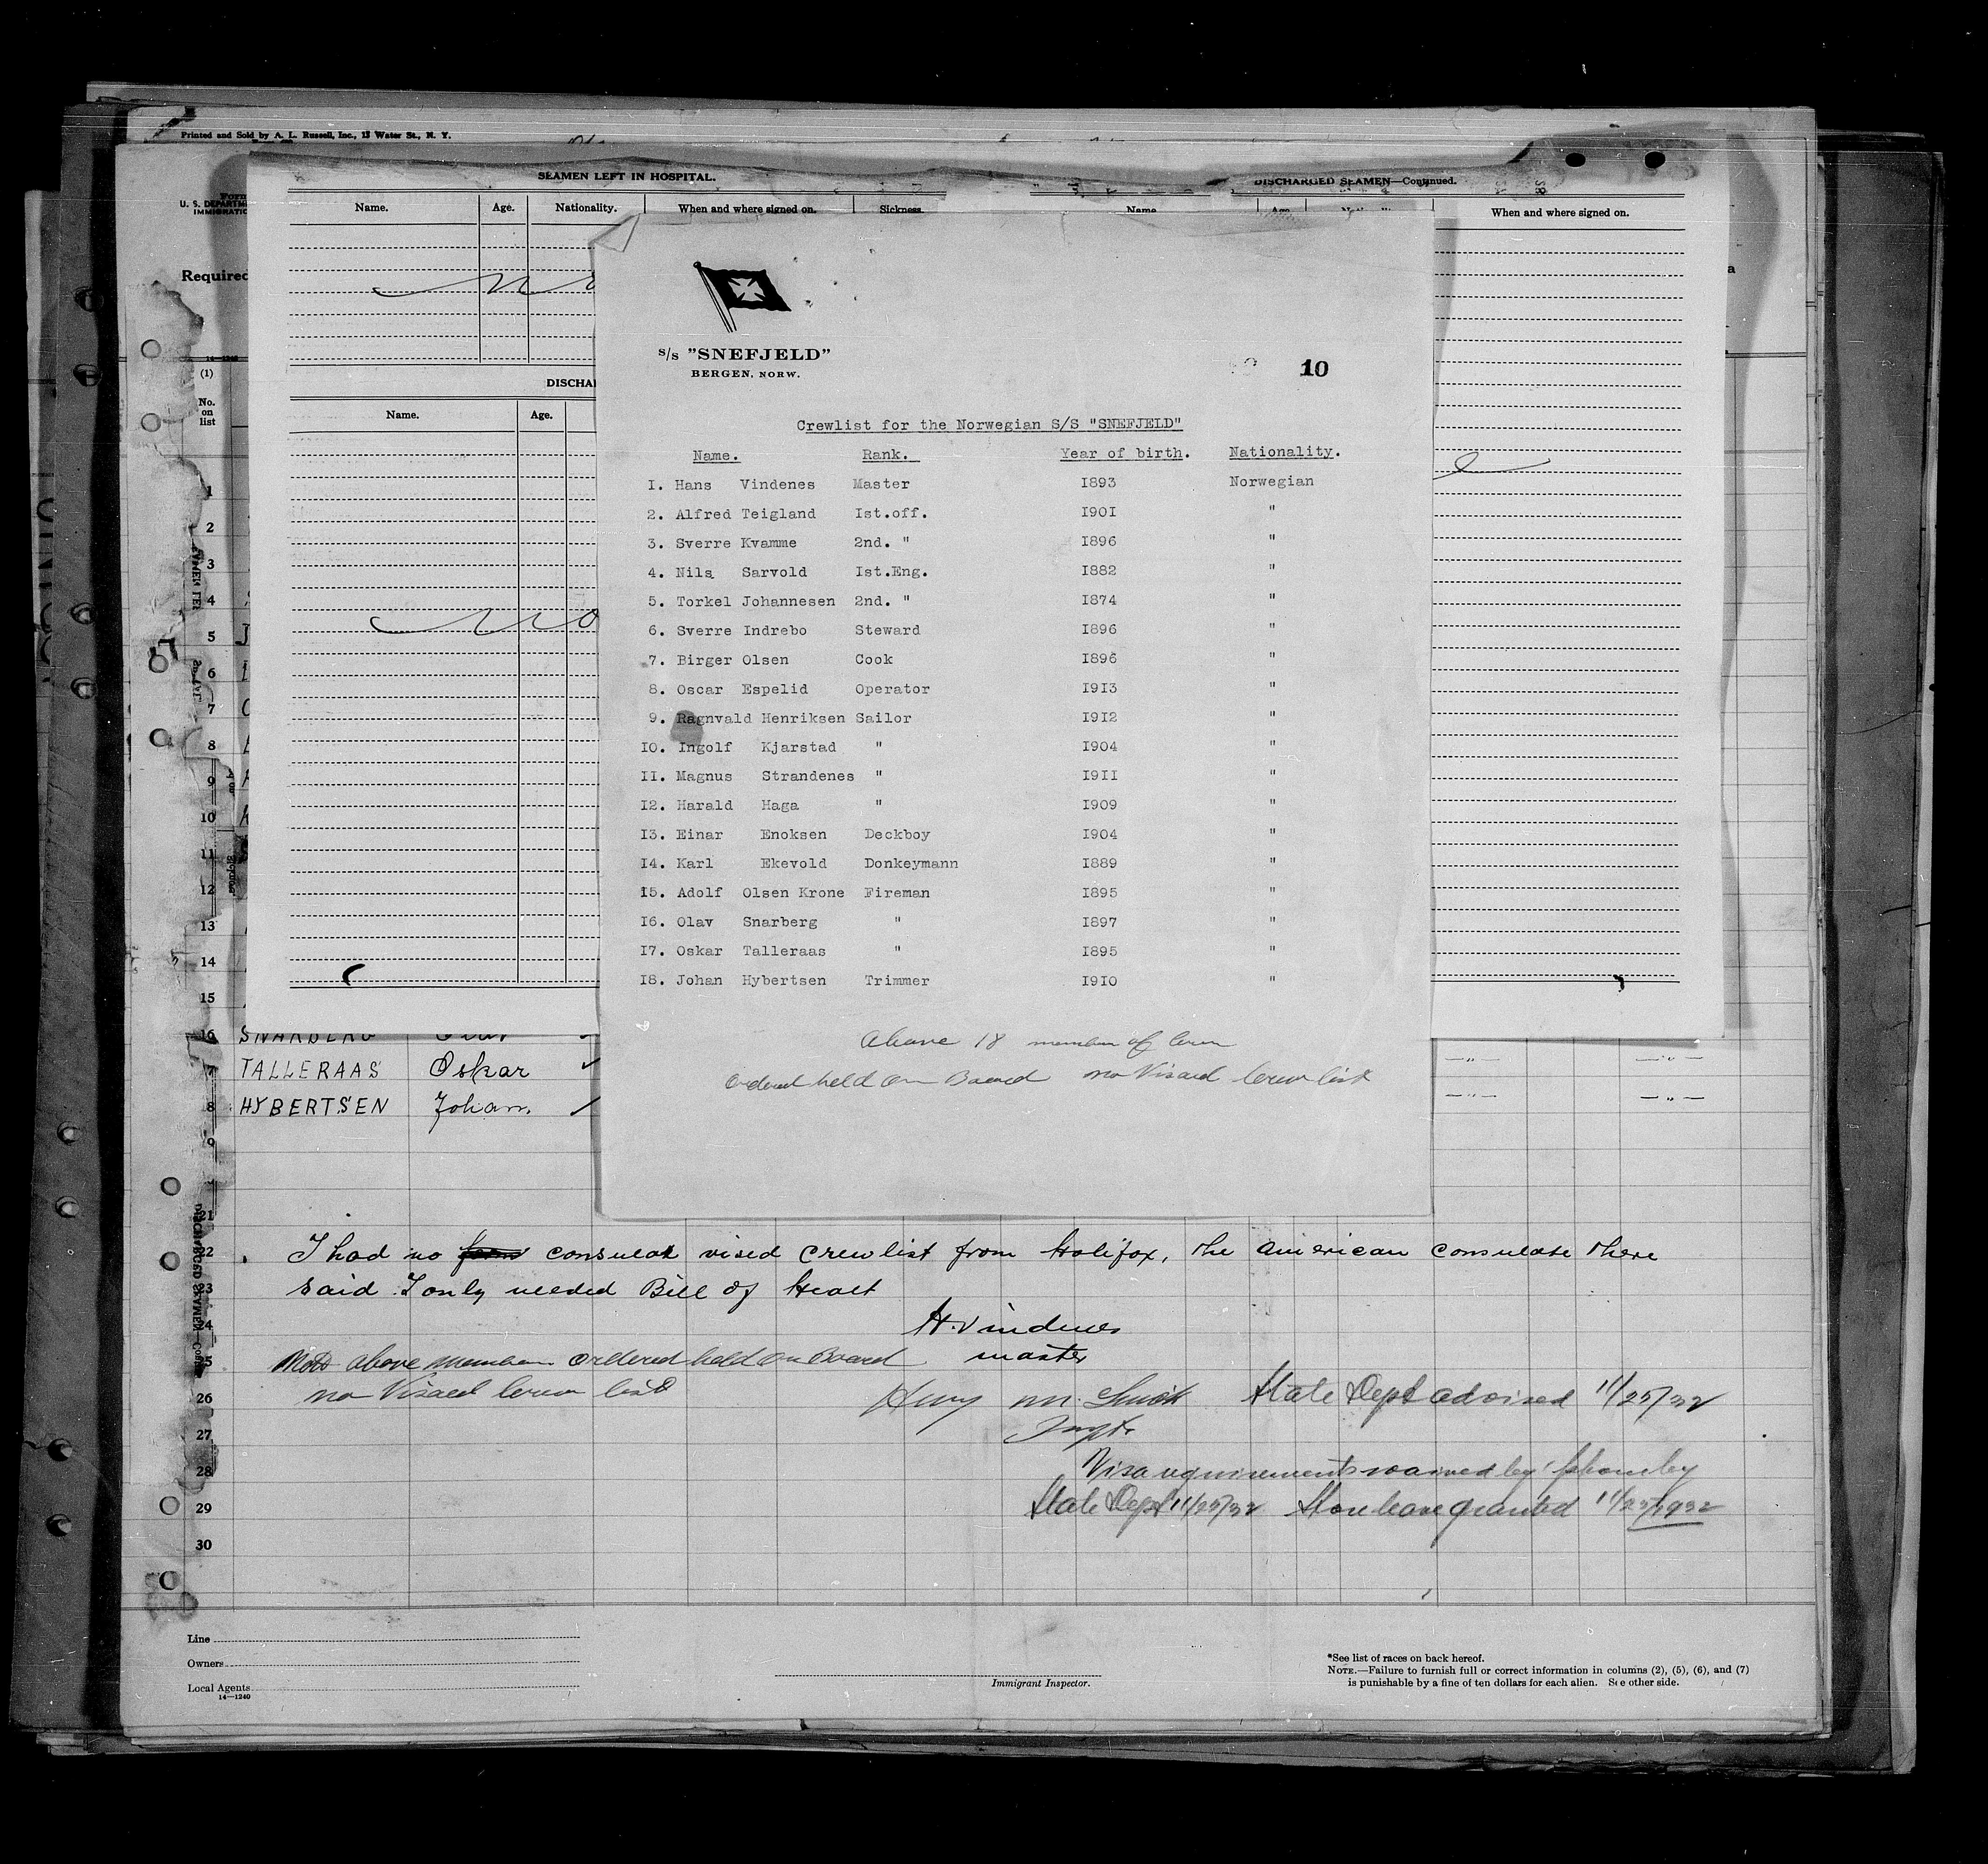 Printed and Sold by A. L. Russell, Inc., 13 Water St., N. Y.
Form
U. S. DEPARTM
IMMIGRATIO
Required
SEAMEN LEFT IN HOSPITAL.
Name. Age. Nationality. When and where signed on. Sickness.
DISCHARGED SEAMEN—Continued.
Name Age When and where signed on.
No
14—1240
(1)
No.
on
list
DISCHA
Name. Age.
No
S/S "SNEFJELD"
BERGEN, NORW.
10
Crewlist for the Norwegian S/S "SNEFJELD"
Name. Rank. Year of birth. Nationality.
I. Hans Vindenes Master I893 Norwegian
2. Alfred Teigland Ist.off. I90I "
3. Sverre Kvamme 2nd. " I896 "
4. Nils Sarvold Ist.Eng. I882 "
5. Torkel Johannesen 2nd. " I874 "
6. Sverre Indrebo Steward I896 "
7. Birger Olsen Cook I896 "
8. Oscar Espelid Operator I9I3 "
9. Ragnvald Henriksen Sailor I9I2 "
IO. Ingolf Kjarstad " I904 "
II. Magnus Strandenes " I9II "
I2. Harald Haga " I909 "
I3. Einar Enoksen Deckboy I904 "
I4. Karl Ekevold Donkeymann I889 "
I5. Adolf Olsen Krone Fireman I895 "
I6. Olav Snarberg " I897 "
I7. Oskar Talleraas " I895 "
I8. Johan Hybertsen Trimmer I9I0 "
Above 18 member of Crew
ordered held on Board no Visaed Crew list
1
2
3
4
5
6
7
8
9
10
11
12
13
14
15
16 SNARBERG Olav
7 TALLERAAS Oskar —"— —"—
8 HYBERTSEN Johan. —"— —"—
9
21
22 I had no consulat vised crewlist from Halifax, the american consulate there
23 said I only needed Bill of Healt
24 H. Vindenes
master
25 above members ordered held on Board
26 no Visaed Crew list
Henry M. Smith
Inspt.
State Dept advised 11/25/32
27
28 Visa requirements waived by phone by
29 State Dept 11/25/32 Shore leave granted 11/25/1932
30
Line
Owners
Local Agents
14—1240
Immigrant Inspector.
*See list of races on back hereof.
NOTE.—Failure to furnish full or correct information in columns (2), (5), (6), and (7)
is punishable by a fine of ten dollars for each alien. See other side.